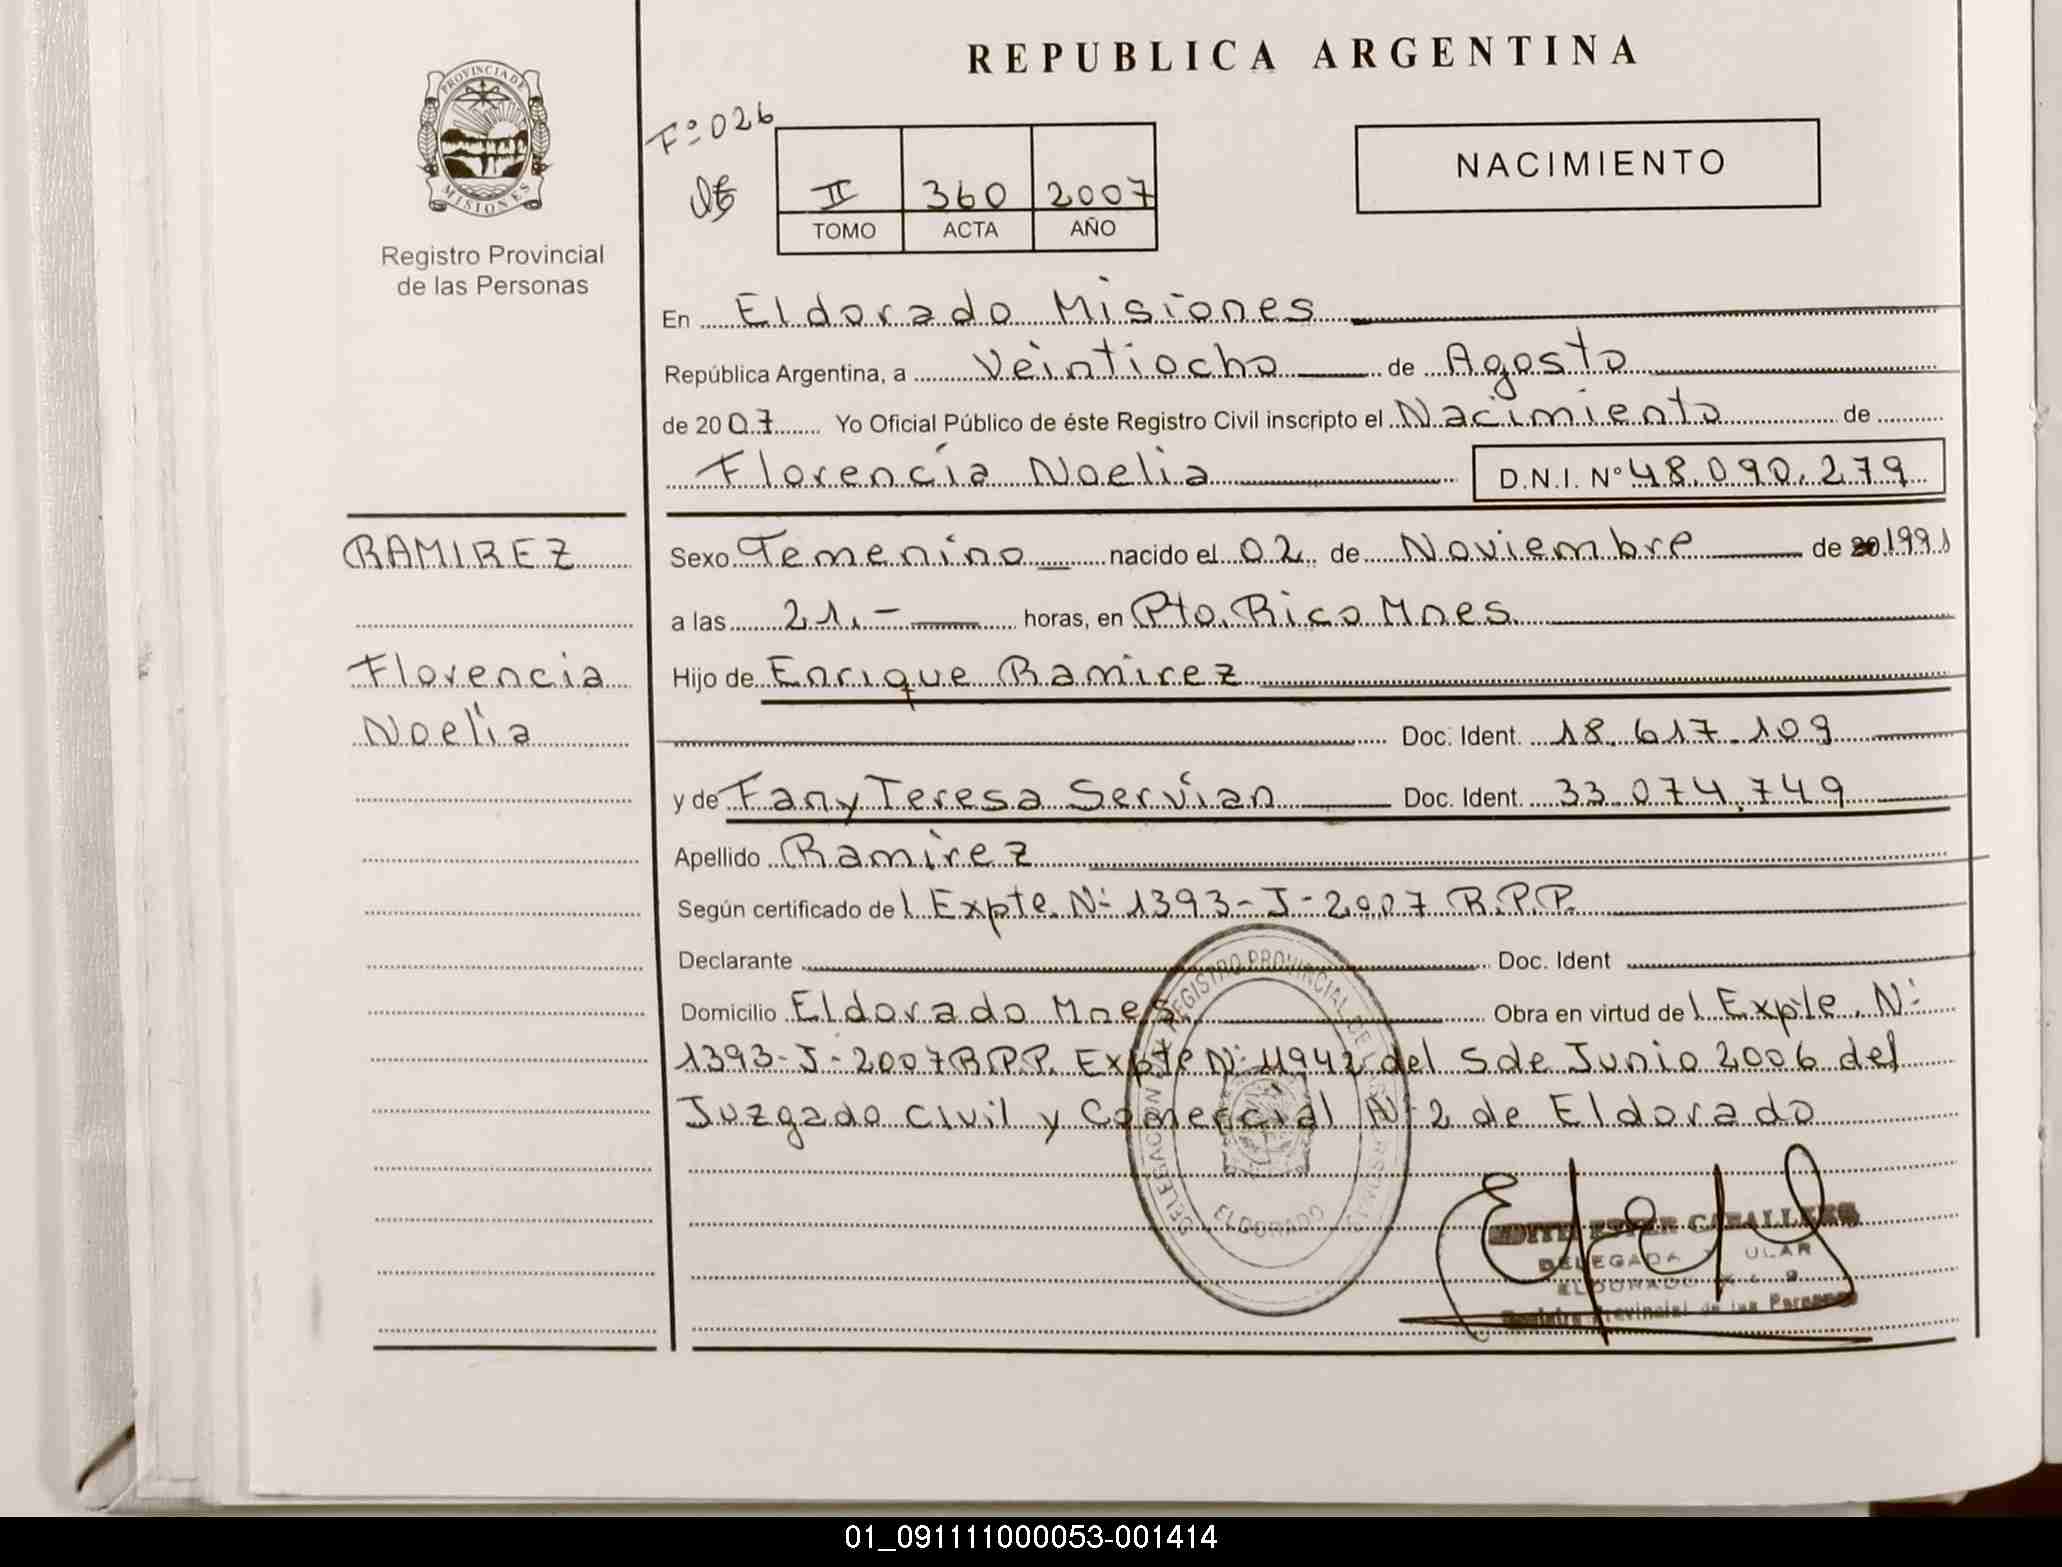 REPUBLICA ARGENTINA
PROVINCIA DE
MISIONES
Registro Provincial
de las Personas
Fº 026
II 360 2007
TOMO ACTA AÑO
NACIMIENTO
En Eldorado Misiones
República Argentina, a Veintiocho de Agosto
de 2007 Yo Oficial Público de éste Registro Civil inscripto el Nacimiento de
Florencia Noelia D.N.I. Nº 48.090.279
RAMIREZ
Florencia
Noelia
Sexo Femenino nacido el 02 de Noviembre de 1991
a las 21.- horas, en Pto. Rico Mnes.
Hijo de Enrique Ramirez
Doc. Ident. 18.617.109
y de Fany Teresa Servian Doc. Ident. 33.074.749
Apellido Ramirez
Según certificado del Expte. Nº 1393-J-2007 R.P.P.
Declarante Doc. Ident
Domicilio Eldorado Mnes. Obra en virtud del Expte. Nº
1393-J-2007 R.P.P. Expte Nº 11942 del 5 de Junio 2006 del
Juzgado Civil y Comercial Nº 2 de Eldorado
DELEGACION REGISTRO PROVINCIAL DE
ELDORADO
ESTER CABALLERO
DELEGADA
ELDORADO
Provincial de las Personas
01_091111000053-001414